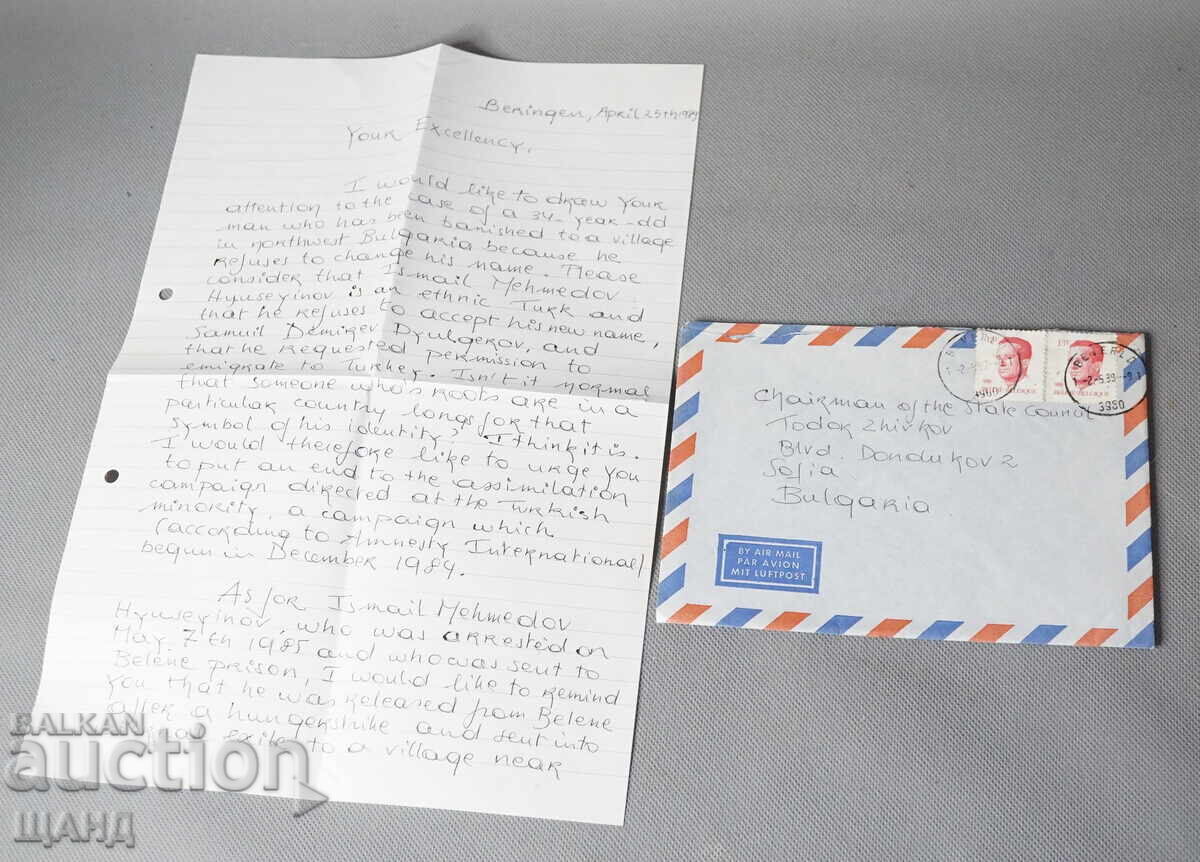 Beringen, April 25th 1989
Your Excellency,
I would like to draw your
attention to the case of a 34-year-old
man who has been banished to a village
in northwest Bulgaria because he
refuses to change his name. Please
consider that Ismail Mehmedov
Hyuseyinov is an ethnic Turk and
that he refuses to accept his new name,
Samuil Demirev Dyulgerov, and
that he requested permission to
emigrate to Turkey. Isn't it normal
that someone who's roots are in a
particular country longs for that
symbol of his identity? I think it is.
I would therefore like to urge you
to put an end to the assimilation
campaign directed at the Turkish
minority, a campaign which
(according to Amnesty International)
begun in December 1984.
As for Ismail Mehmedov
Hyuseyinov, who was arrested on
May 7th 1985 and who was sent to
Belene prison, I would like to remind
you that he was released from Belene
after a hungerstrike and sent into
exile to a village near
BEVERLO
2-5.89
3980
BELGIE-BELGIQUE
Chairman of the State Council
Todor Zhivkov
Blvd. Dondukov 2
Sofia
Bulgaria
BY AIR MAIL
PAR AVION
MIT LUFTPOST
BALKAN
auction
ЩАНД